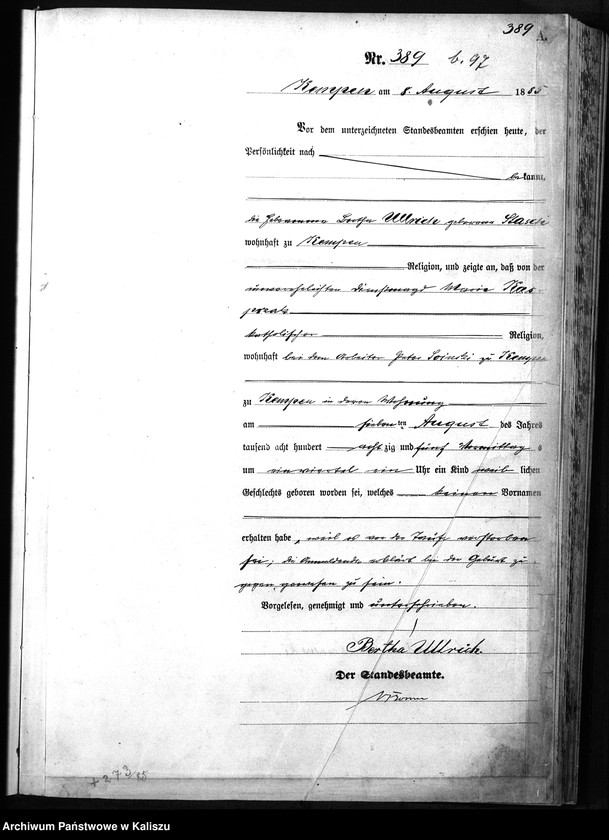 389
A.
Nr. 389 b. 97
Kempen am 8. August 1885
Vor dem unterzeichneten Standesbeamten erschien heute, der
Persönlichkeit nach
bekannt,
die Hebamme Bertha Ullrich geborene
wohnhaft zu Kempen
Religion, und zeigte an, daß von der
unverehelichten Dienstmagd Marie Kas-
przak
katholischer Religion,
wohnhaft bei dem Arbeiter Peter zu Kempen
zu Kempen in deren Wohnung
am siebenten August des Jahres
tausend acht hundert achtzig und fünf Vormittags
um ein viertel ein Uhr ein Kind weiblichen
Geschlechts geboren worden sei, welches keinen Vornamen
erhalten habe, weil es vor der Taufe verstorben
sei; die Anmeldende erklärt bei der Geburt zu-
gegen gewesen zu sein.
Vorgelesen, genehmigt und unterschrieben.
Bertha Ullrich.
Der Standesbeamte.
+273/85
Archiwum Państwowe w Kaliszu